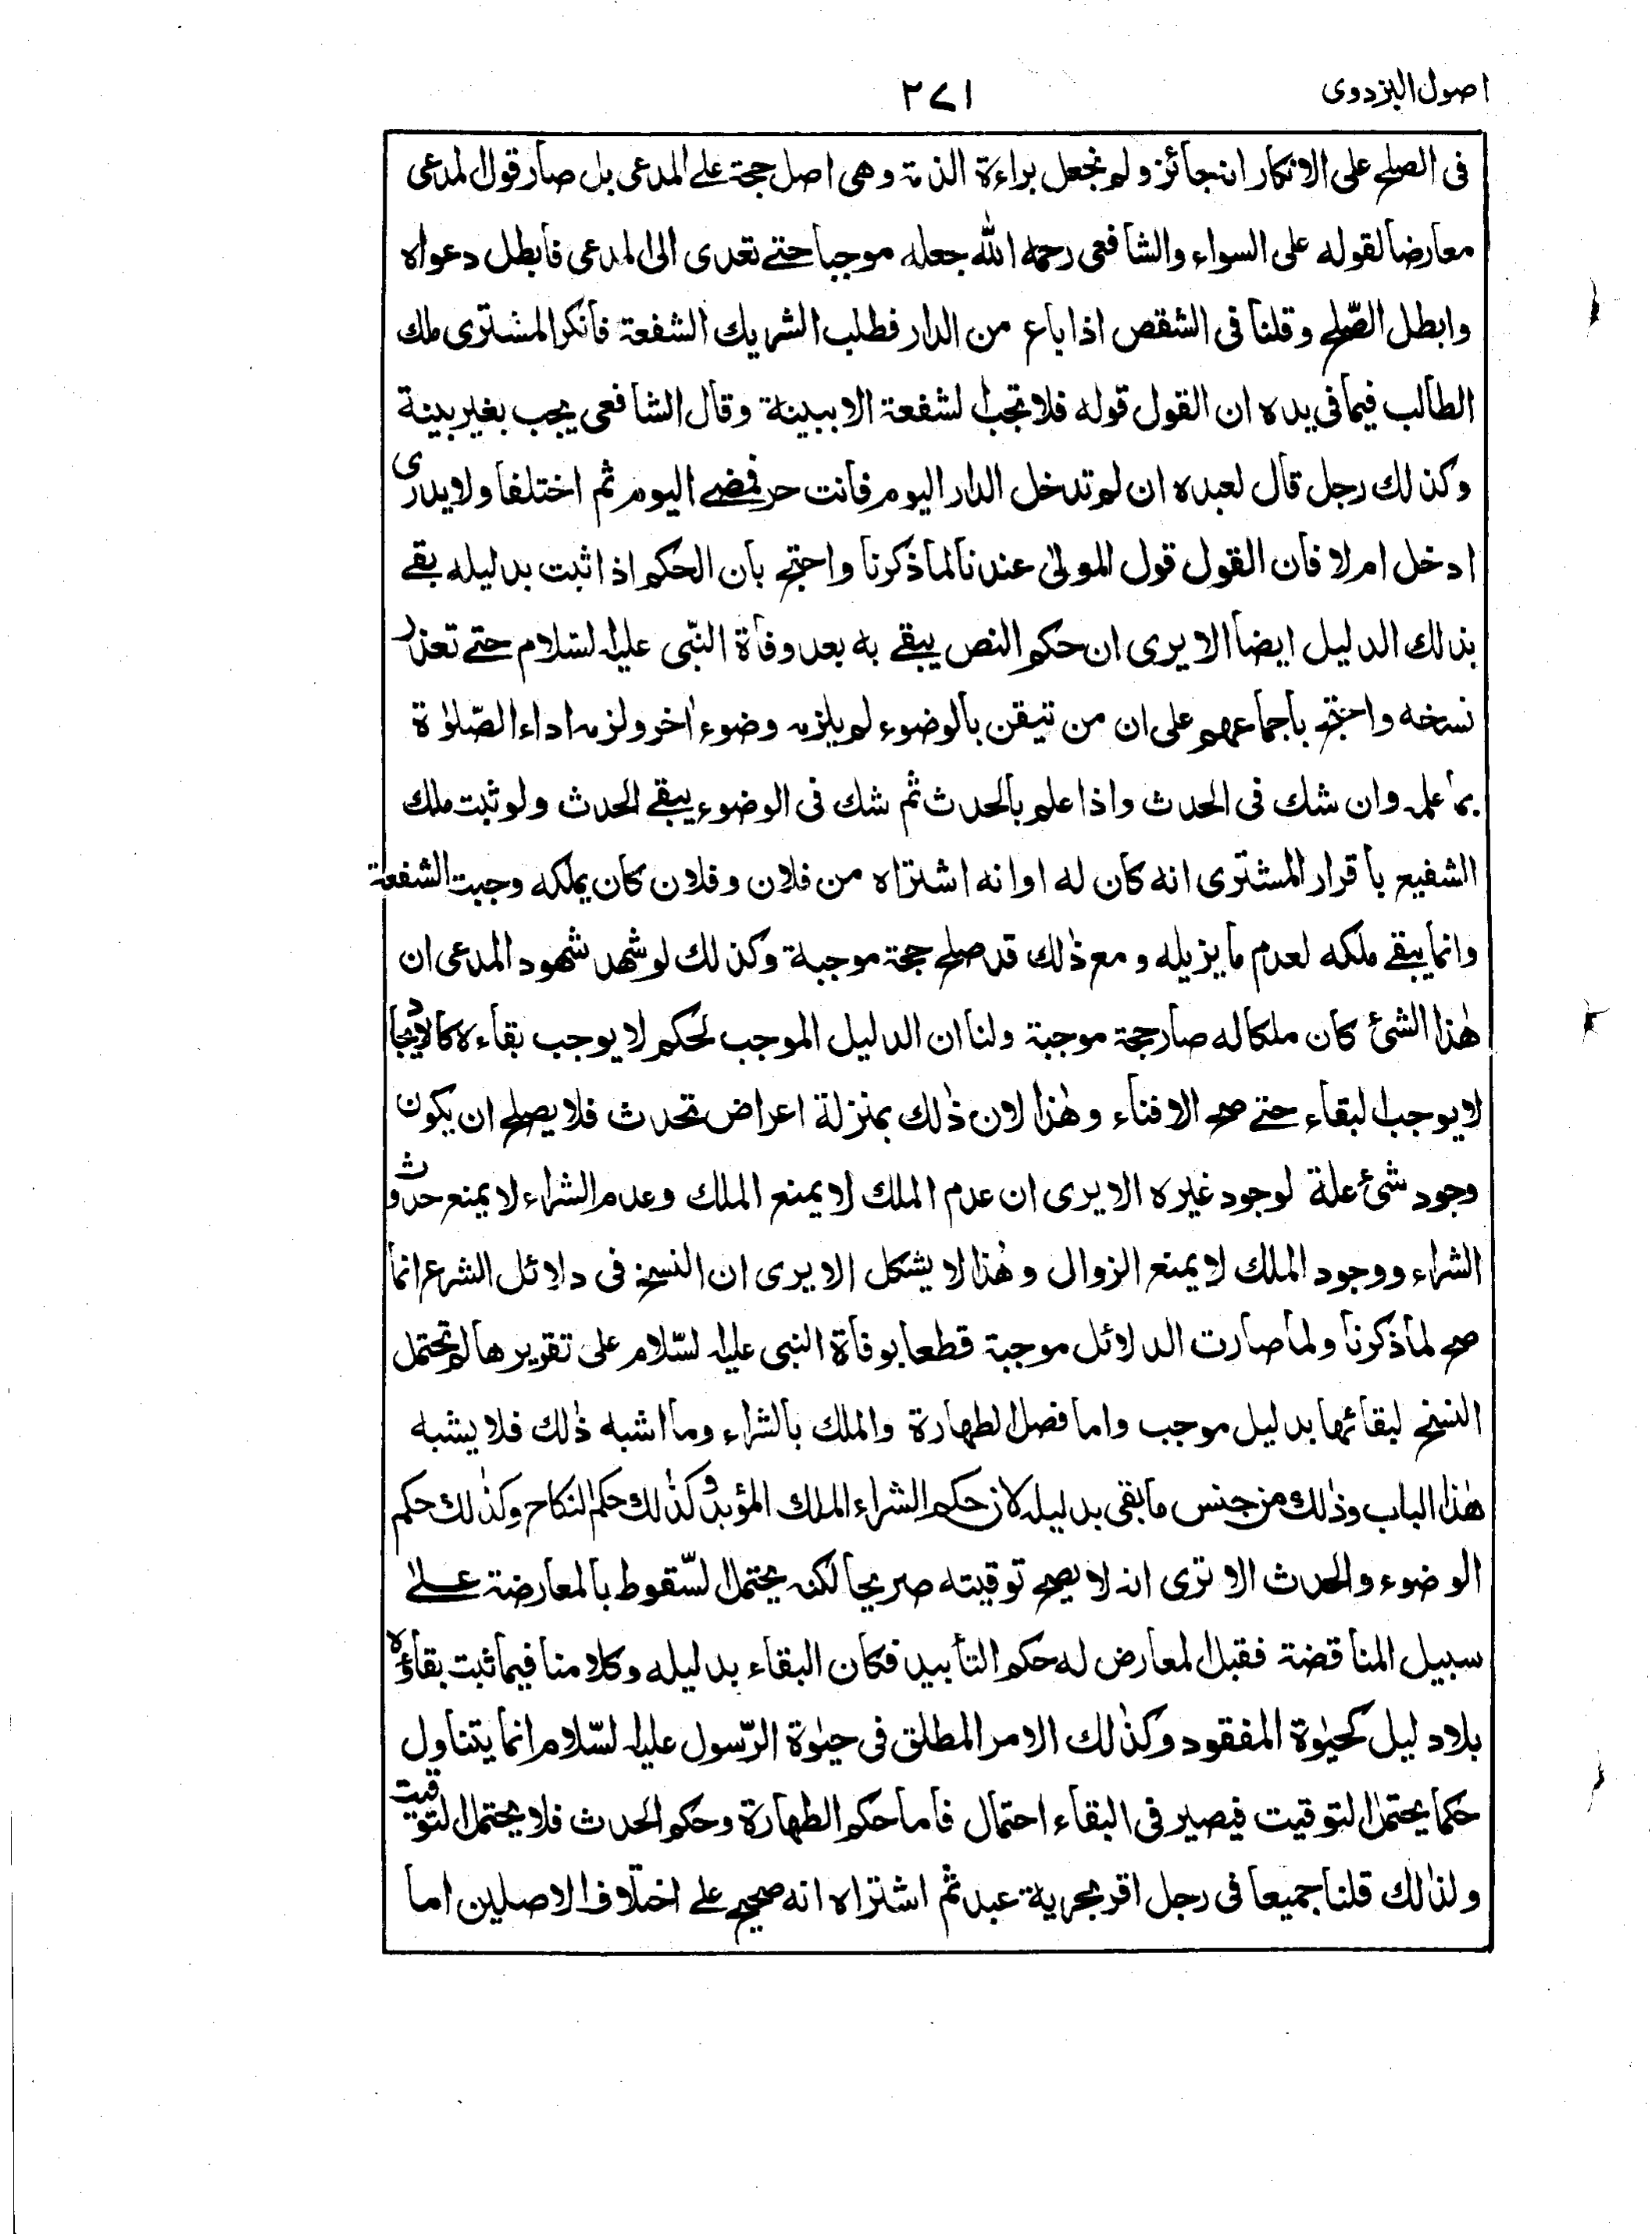 اصول البزدوى
٢٧١
فى الصلح على الانكار انه جائز ولم نجعل براءة الذمة وهى اصل حجة على المدعى بل صار قول المدعى
معارضا لقوله على السواء والشافعى رحمه الله جعله موجبا حتى تعدى الى المدعى فابطل دعواه
وابطل الصّلح وقلنا فى الشقص اذا باع من الدار فطلب الشريك الشفعة فانكر المشترى ملك
الطالب فيما فى يده ان القول قوله فلا تجب الشفعة الا ببينة وقال الشافعى يجب بغير بينة
وكذلك رجل قال لعبده ان لم تدخل الدار اليوم فانت حر فمضى اليوم ثم اختلفا ولا يدرى
ادخل ام لا فان القول قول المولىٰ عندنا لما ذكرنا واحتج بان الحكم اذا ثبت بدليله بقى
بذلك الدليل ايضا الا يرى ان حكم النص يبقى به بعد وفاة النّبى عليه السّلام حتى تعذر
نسخه واحتج باجماعهم على ان من تيقن بالوضوء لم يلزمه وضوء اٰخر ولزمه اداء الصّلوٰة
بما علمه وان شك فى الحدث واذا علم بالحدث ثم شك فى الوضوء يبقى الحدث ولو ثبت ملك
الشفيع باقرار المشترى انه كان له او انه اشتراه من فلان وفلان كان يملكه وجبت الشفعة
وانما يبقى ملكه لعدم ما يزيله ومع ذٰلك قد صلح حجة موجبة وكذلك لو شهد شهود المدعى ان
هٰذا الشئ كان ملكا له صار حجة موجبة ولنا ان الدليل الموجب لحكم لا يوجب بقاءه كالايجاد
لا يوجب البقاء حتى صح الافناء وهٰذا لان ذٰلك بمنزلة اعراض تحدث فلا يصلح ان يكون
وجود شئ علة لوجود غيره الا يرى ان عدم الملك لا يمنع الملك وعدم الشراء لا يمنع حدوث
الشراء ووجود الملك لا يمنع الزوال وهٰذا لا يشكل الا يرى ان النسخ فى دلائل الشرع انما
صح لما ذكرنا ولما صارت الدلائل موجبة قطعا بوفاة النبى عليه السّلام على تقريرها لم تحتمل
النسخ لبقائها بدليل موجب واما فصل الطهارة والملك بالشراء وما اشبه ذٰلك فلا يشبه
هٰذا الباب وذٰلك من جنس ما بقى بدليله لان حكم الشراء الملك المؤبد وكذٰلك حكم النكاح وكذٰلك حكم
الوضوء والحدث الا ترى انه لا يصح توقيته صريحا لكنه يحتمل السّقوط بالمعارضة علىٰ
سبيل المناقضة فقبل المعارض له حكم التأبيد فكان البقاء بدليله وكلامنا فيما ثبت بقاؤه
بلا دليل كحيٰوة المفقود وكذٰلك الامر المطلق فى حيٰوة الرّسول عليه السّلام انما يتناول
حكما يحتمل التوقيت فيصير فى البقاء احتمال فاما حكم الطهارة وحكم الحدث فلا يحتمل التوقيت
ولذٰلك قلنا جميعا فى رجل اقر بحرية عبد ثم اشتراه انه صحيح على اختلاف الاصلين اما